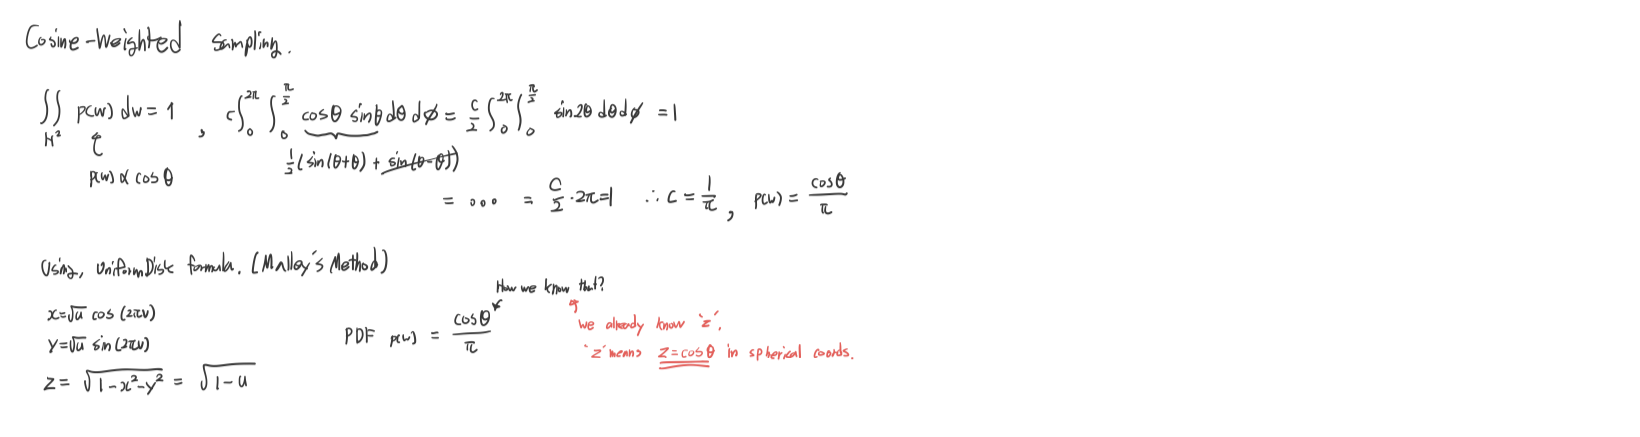 Cosine-Weighted Sampling.
∬_H² p(w) dw = 1 , c∫_0^2π ∫_0^π/2 cosθ sinθ dθ dϕ = c/2 ∫_0^2π ∫_0^π/2 sin2θ dθdϕ = 1
p(w) ∝ cosθ
1/2 (sin(θ+θ) + sin(θ-θ))
= ... = c/2 · 2π = 1 ∴ c = 1/π , p(w) = cosθ/π
Using, UniformDisk formula. (Malley's Method)
x = √u cos (2πv)
y = √u sin (2πv)
z = √1-x²-y² = √1-u
PDF p(w) = cosθ/π
How we know that?
we already know 'z'.
'z' means z = cosθ in spherical coords.